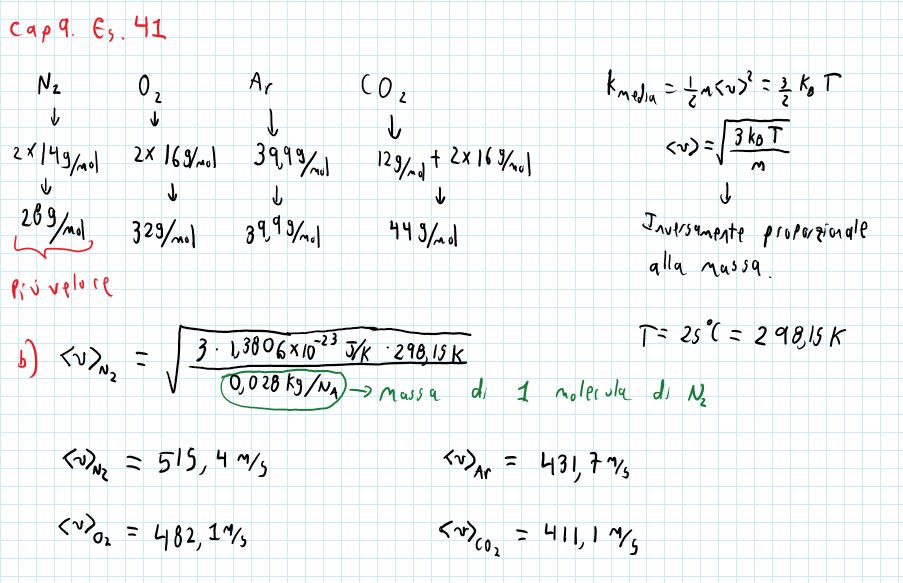 Cap 9. Es. 41
N₂ O₂ Ar CO₂
↓ ↓ ↓ ↓
2×14g/mol 2×16g/mol 39,9g/mol 12g/mol + 2×16g/mol
↓ ↓ ↓ ↓
28g/mol 32g/mol 39,9g/mol 44g/mol
Più veloce
K_media = 1/2 m<v>² = 3/2 K_B T
<v> = √(3 k_B T / m)
↓
Inversamente proporzionale
alla massa.
T = 25°C = 298,15 K
b) <v>_N₂ = √(3 · 1,3806×10⁻²³ J/K · 298,15 K / 0,028 kg/N_A) → massa di 1 molecula di N₂
<v>_N₂ = 515,4 m/s <v>_Ar = 431,7 m/s
<v>_O₂ = 482,1 m/s <v>_CO₂ = 411,1 m/s